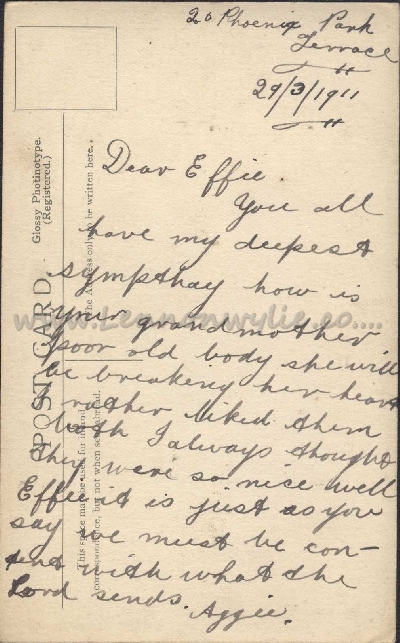 20 Phoenix Park
Terrace
29/3/1911
Dear Effie
You all
have my deepest
sympthay how is
your grandmother
poor old body she will
be breakeng her heart
I rather liked them
both I always thought
they were so nice well
Effie it is just as you
say we must be con-
tent with what the
Lord sends. Aggie.
Glossy Photinotype.
(Registered.)
POST CARD.
The Address only to be written here.
This space may be used for inland
correspondence, but not when sent abroad.
www.Lennonwylie.co....